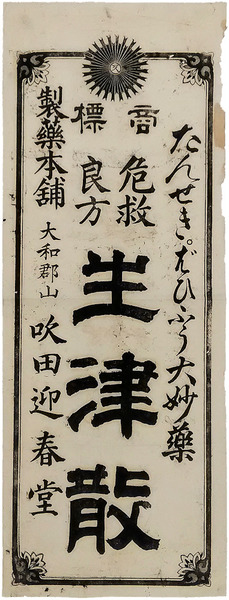 商標
たんせき。ぜひふう大妙藥
危救
良方
生津散
製藥本舗
大和郡山
吹田迎春堂